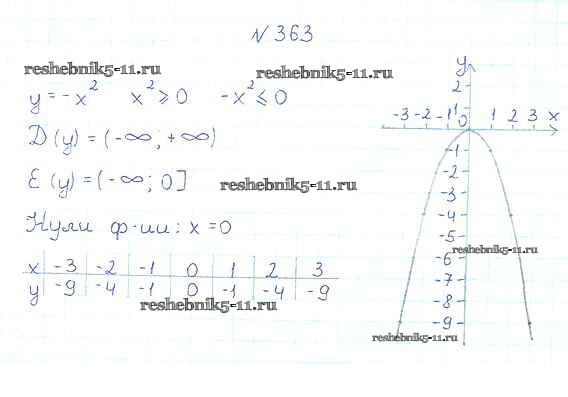 N 363
reshebnik5-11.ru
reshebnik5-11.ru
y = -x² x² ⩾ 0 -x² ⩽ 0
D(y) = (-∞; +∞)
E(y) = (-∞; 0]
reshebnik5-11.ru
Нули ф-ии: x = 0
x -3 -2 -1 0 1 2 3
y -9 -4 -1 0 -1 -4 -9
reshebnik5-11.ru
y
2
1
-3 -2 -1 0 1 2 3 x
-1
-2
-3
-4
-5
reshebnik5-11.ru
-6
-7
-8
-9
reshebnik5-11.ru